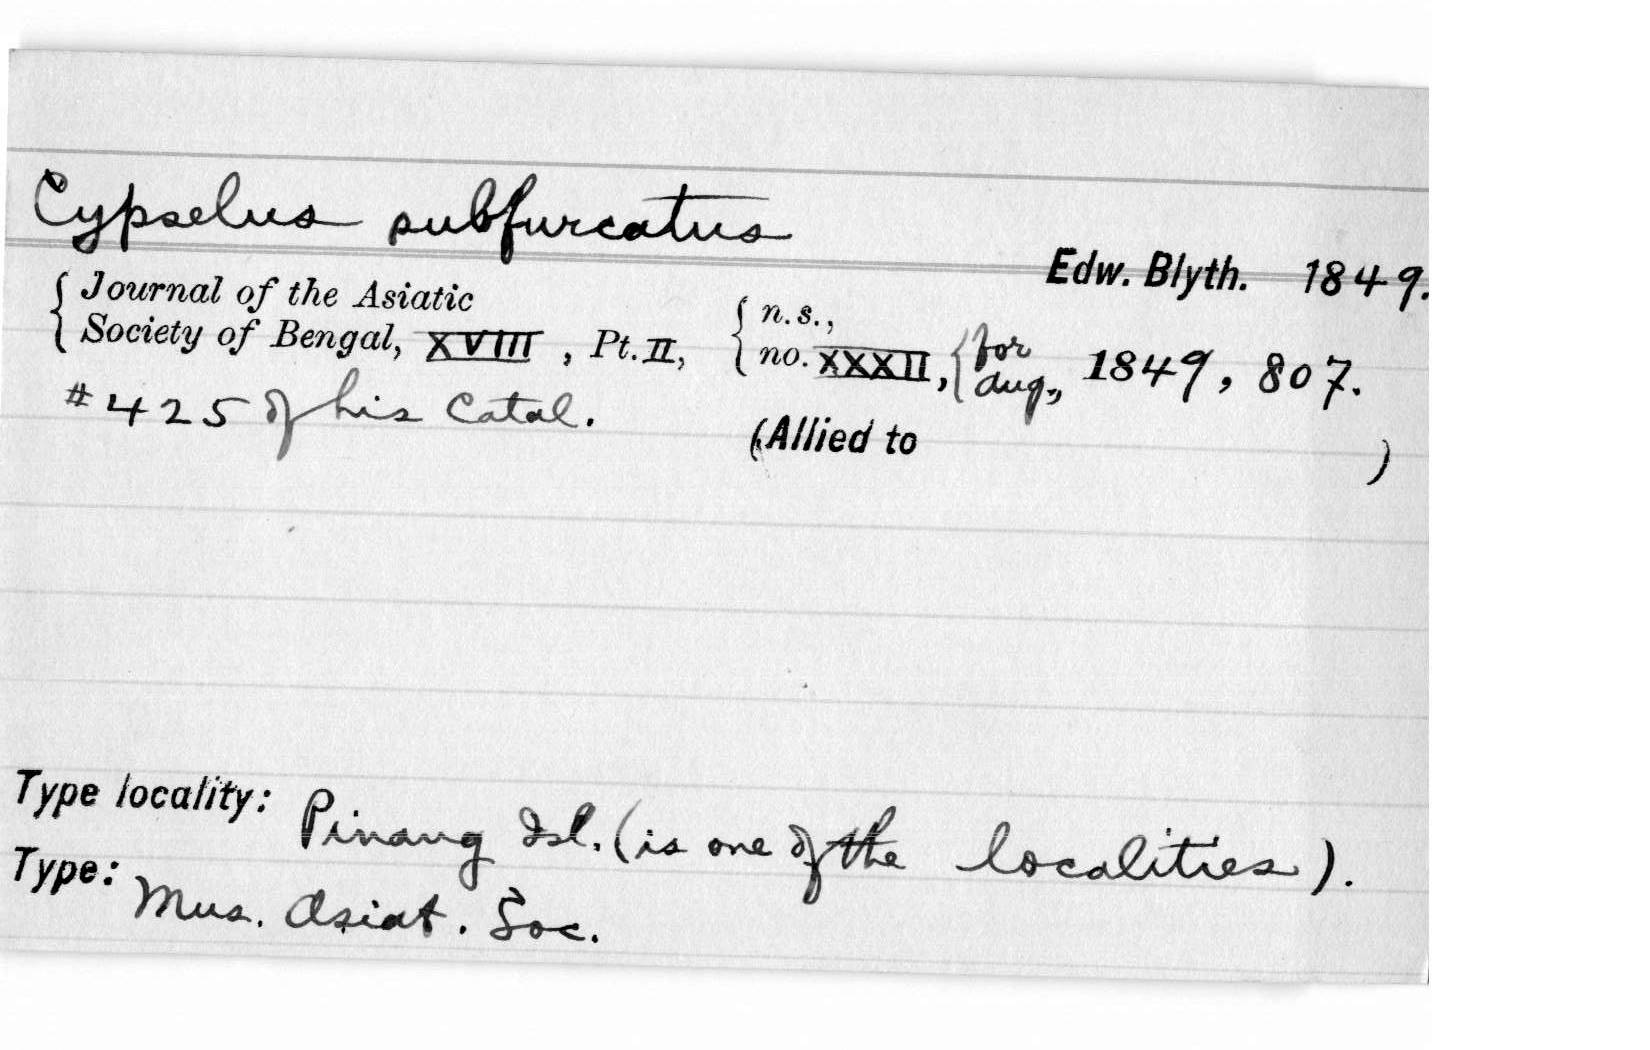 Cypselus subfurcatus
Edw. Blyth. 1849.
{ Journal of the Asiatic
{ Society of Bengal, XVIII , Pt. II, { n.s., no. XXXII, { for Aug., 1849, 807.
#425 of his Catal.
(Allied to )
Type locality: Pinang Isl. (is one of the localities).
Type: Mus. Asiat. Soc.